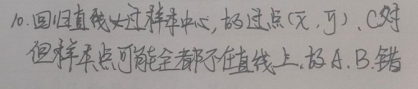 10.回归直线必过样本中心,故过点(x̄,ȳ).C对
但样本点可能全都不在直线上.故A.B.错